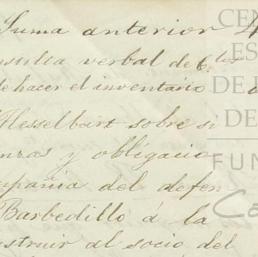 Suma anterior
nsulta verbal de
de hacer el inventario
Hesselbart sobre si
anzas y obligacio
mpañia del defen
Barbedillo á la
struir al socio del
CEN
ES
DE
DE
FUN
Ca